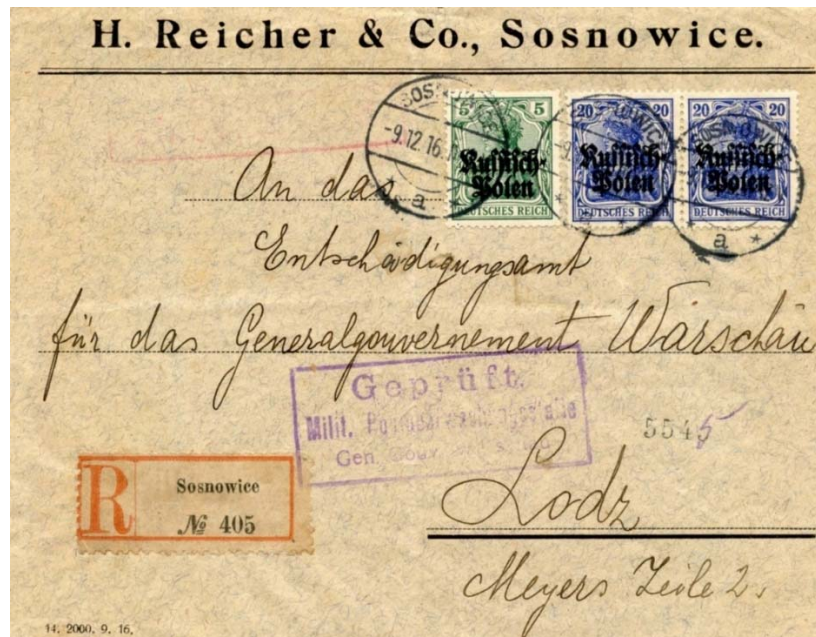 H. Reicher & Co., Sosnowice.
5 5
20 20
20 20
SOSNOWICE
-9.12.16.
a
Russisch-
Polen
Russisch-
Polen
Russisch-
Polen
DEUTSCHES REICH
DEUTSCHES REICH
DEUTSCHES REICH
SOSNOWICE
a
An das
Entschädigungsamt
für das Generalgouvernement Warschau
Geprüft.
Milit.
Gen.
5545
R
Sosnowice
№ 405
Lodz
Meyers Zeile 2.
14. 2000. 9. 16.